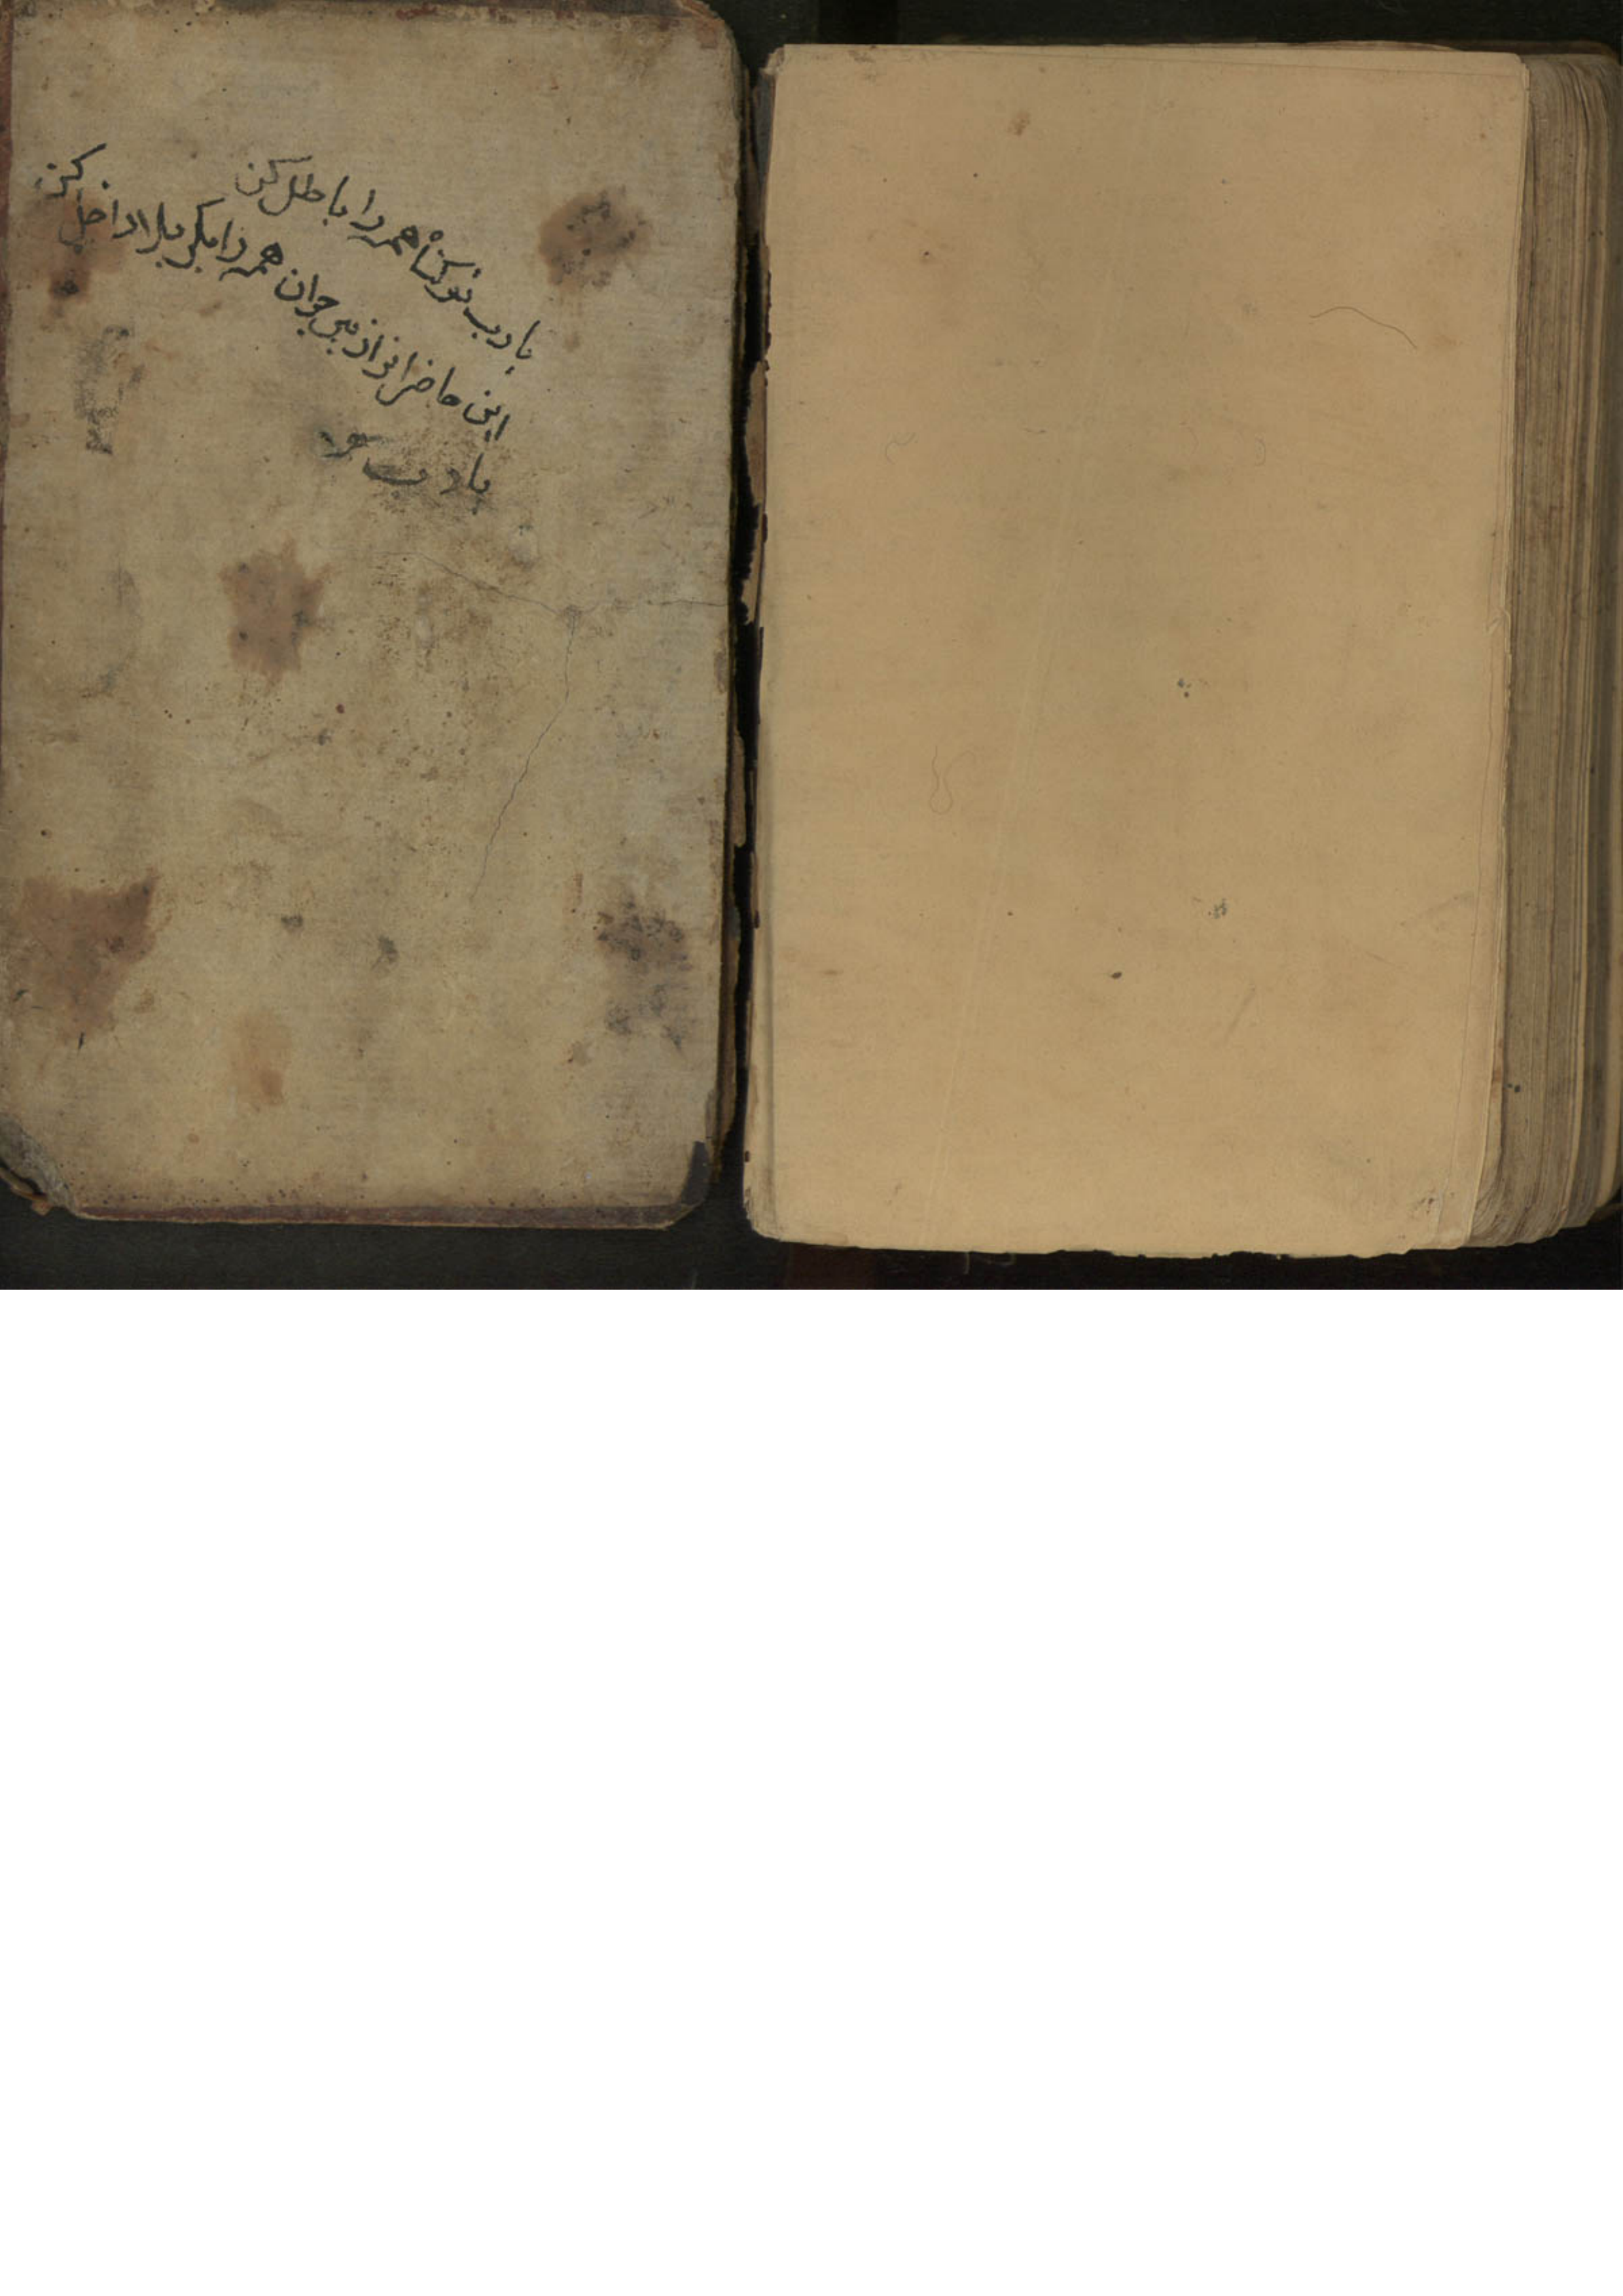 یا رب تو گناه همه را باطل کن
این حاضران از پیر جوان همه را بکربلا داخل کن
یا رب